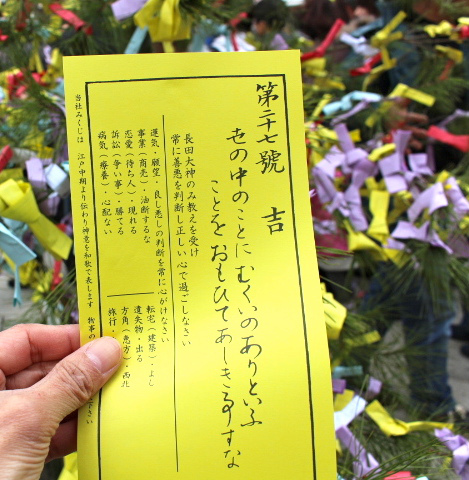 第二十七號 吉
世の中のことに むくいのありといふ
ことを おもひてあしき事すな
長田大神のみ教えを受け
常に善悪を判断し正しい心で過ごしなさい
運気・願望・良し悪しの判断を常に心がけなさい
事業(商売)・油断するな
恋愛(待ち人)・現れる
訴訟(争い事)・勝てる
病気(療養)・心配ない
転宅(建築)・よし
遺失物・出る
方角(恵方)・西北
旅行・
当社みくじは 江戸中期より伝わり神意を和歌で表します 物事の
さい